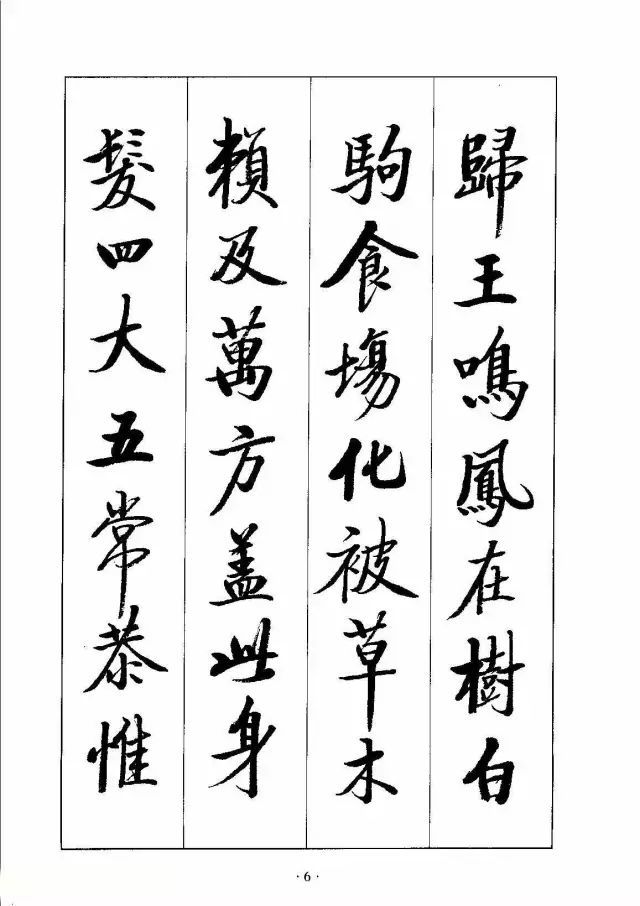 歸王鳴鳳在樹白
駒食場化被草木
賴及萬方蓋此身
髮四大五常恭惟
·6·